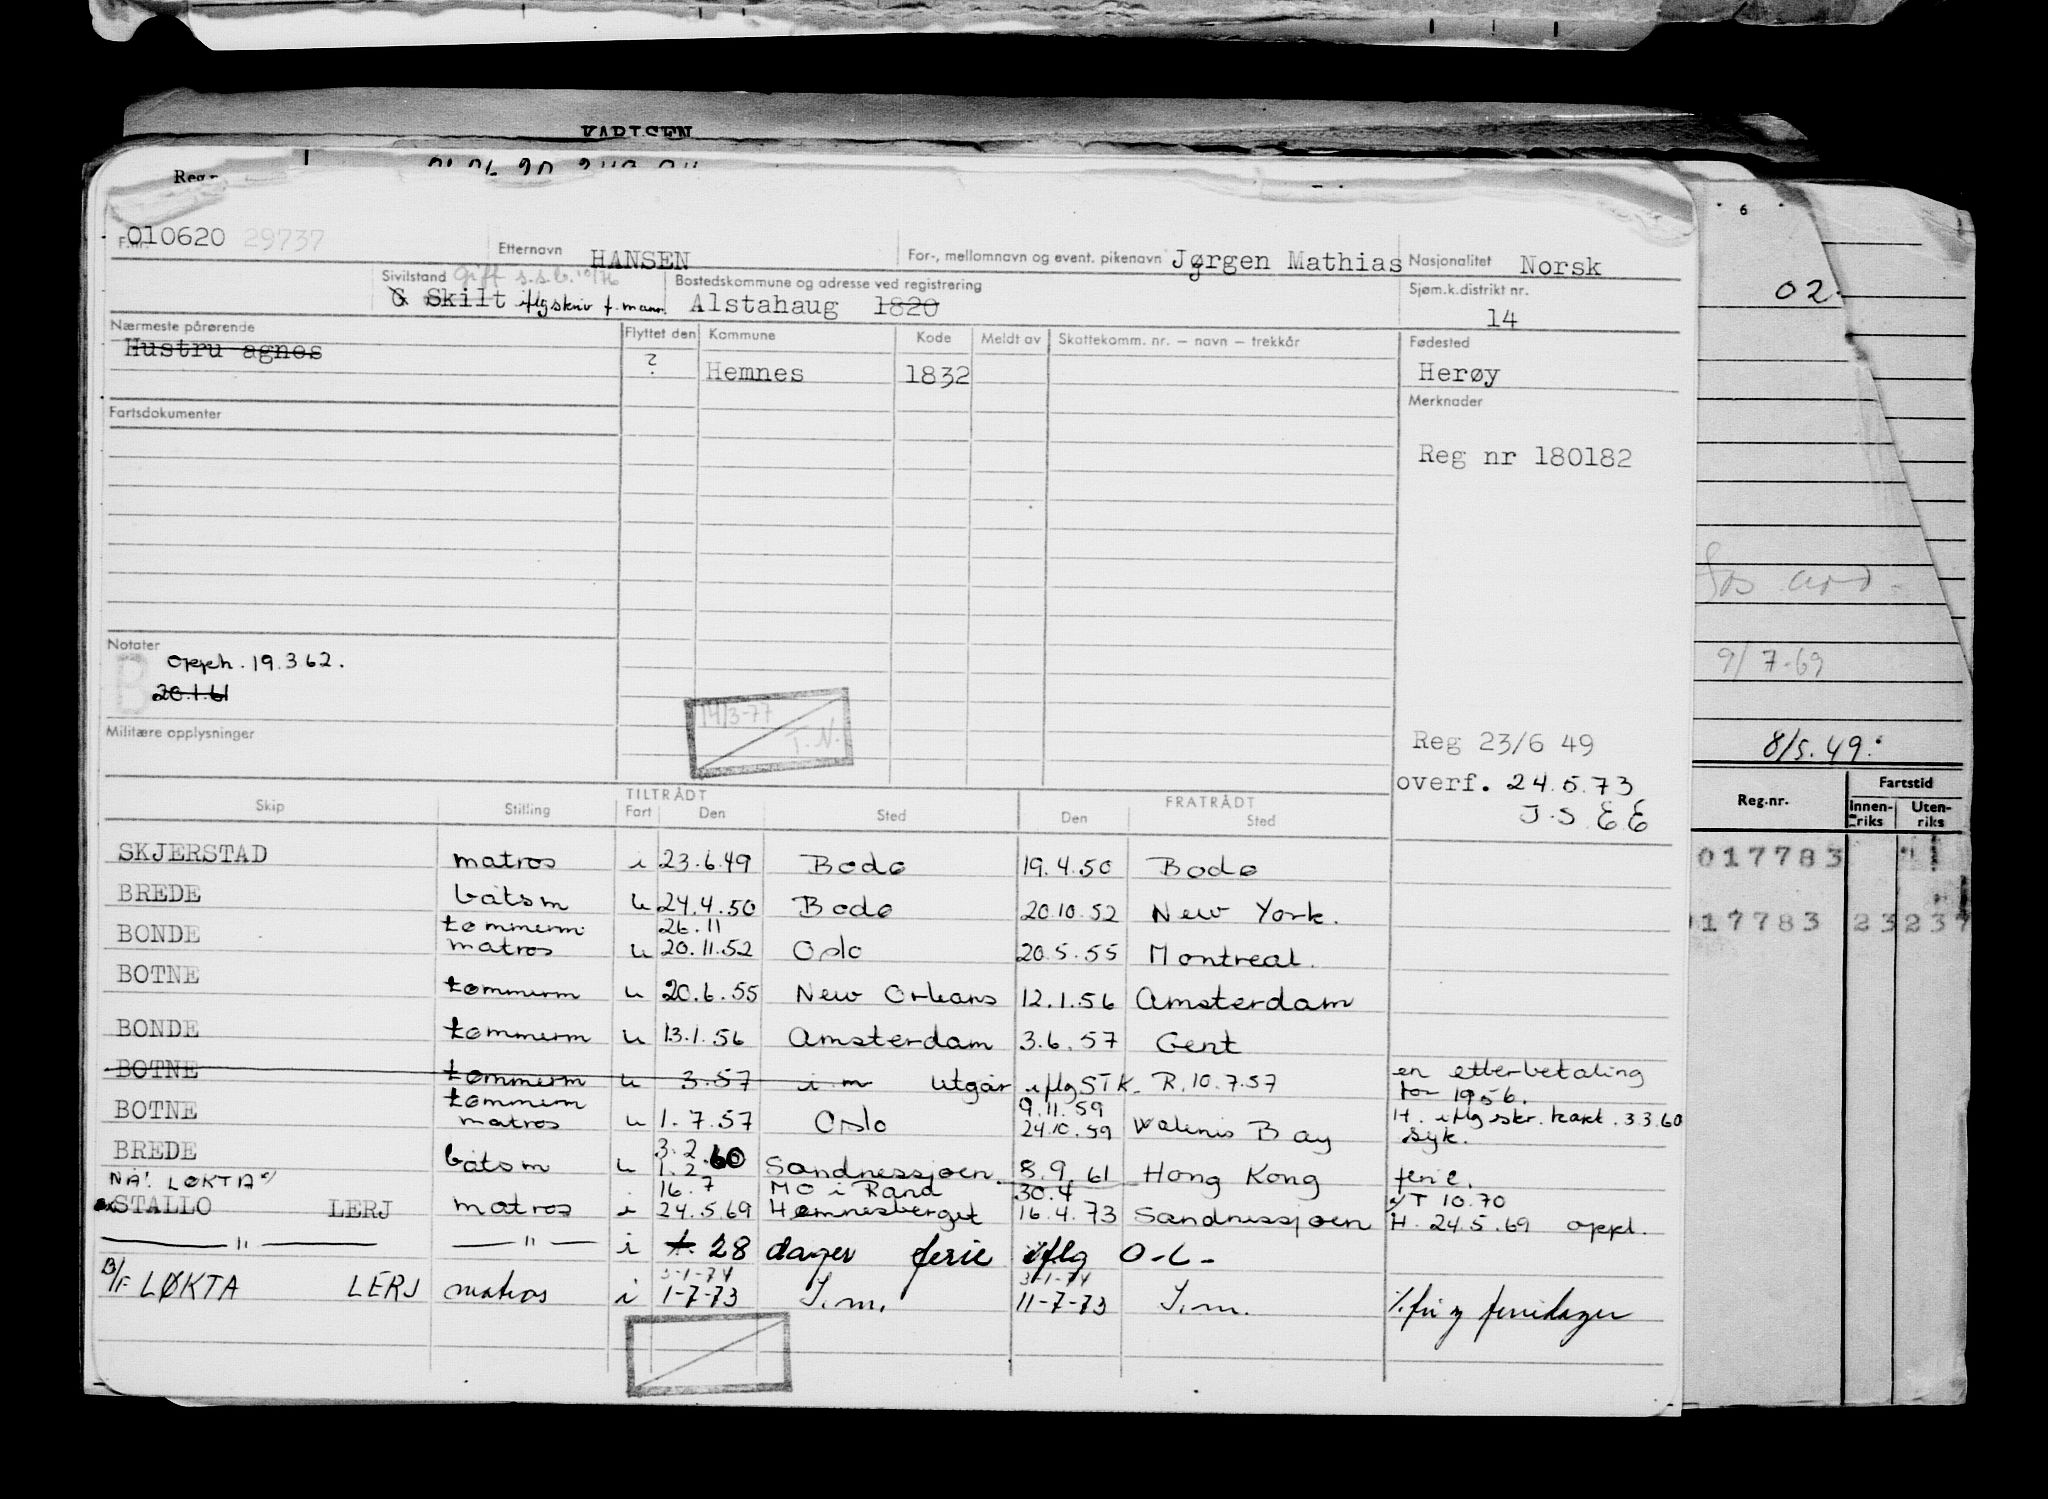 KARLSEN
Reg.nr.
010620 29737
F.nr.
Etternavn HANSEN
For-, mellomnavn og event. pikenavn Jørgen Mathias
Nasjonalitet Norsk
Sivilstand Gift s.s.b. 10/76
G Skilt iflg skriv f. mann.
Bostedskommune og adresse ved registrering
Alstahaug 1820
Sjøm.k.distrikt nr.
14
Nærmeste pårørende
Hustru agnes
Flyttet den Kommune Kode Meldt av Skattekomm. nr. — navn — trekkår
? Hemnes 1832
Fødested
Herøy
Fartsdokumenter
Merknader
Reg nr 180182
Notater
B
opph. 19.3 62.
20.1.61
Militære opplysninger
14/3-77
T.N.
Reg 23/6 49
overf. 24.5.73
J.S EE
Skip Stilling TILTRÅDT Fart Den Sted FRATRÅDT Den Sted
SKJERSTAD matros i 23.6.49 Bodo 19.4.50 Bodo
BREDE båtsm u 24.4.50 Bodo 20.10.52 New York.
tømmerm 26.11
BONDE matros u 20.11.52 Oslo 20.5.55 Montreal.
BOTNE tømmerm u 20.6.55 New Orleans 12.1.56 Amsterdam
BONDE tømmerm u 13.1.56 Amsterdam 3.6.57 Gent
BOTNE tømmerm u 3.57 i m utgår iflg STK. R. 10.7.57 en etterbetaling
for 1956.
tømmerm 9.11.59
BOTNE matros u 1.7.57 Oslo 24.10.59 Walenis Bay H. iflg skr. kart. 3.3.60
syk.
3.2.60
BREDE båtsm u 1.2 Sandnessjøen 8.9.61 Hong Kong ferie.
NÅ! LØKTA 16.7 MO i Rana 30.4 T 10.70
STALLO LERJ matros i 24.5.69 Hemnesberget 16.4.73 Sandnessjøen H. 24.5.69 oppl.
— " — — " — i 28 dager ferie iflg O-L-
3-1-74 3-1-74
B/F LØKTA LERJ matros i 1-7-73 I.m. 11-7-73 I.m. % fri og feriedager
6
02.
9/7-69
8/5.49.
Reg.nr. Fartstid
Innenriks Utenriks
017783
17783 23 237